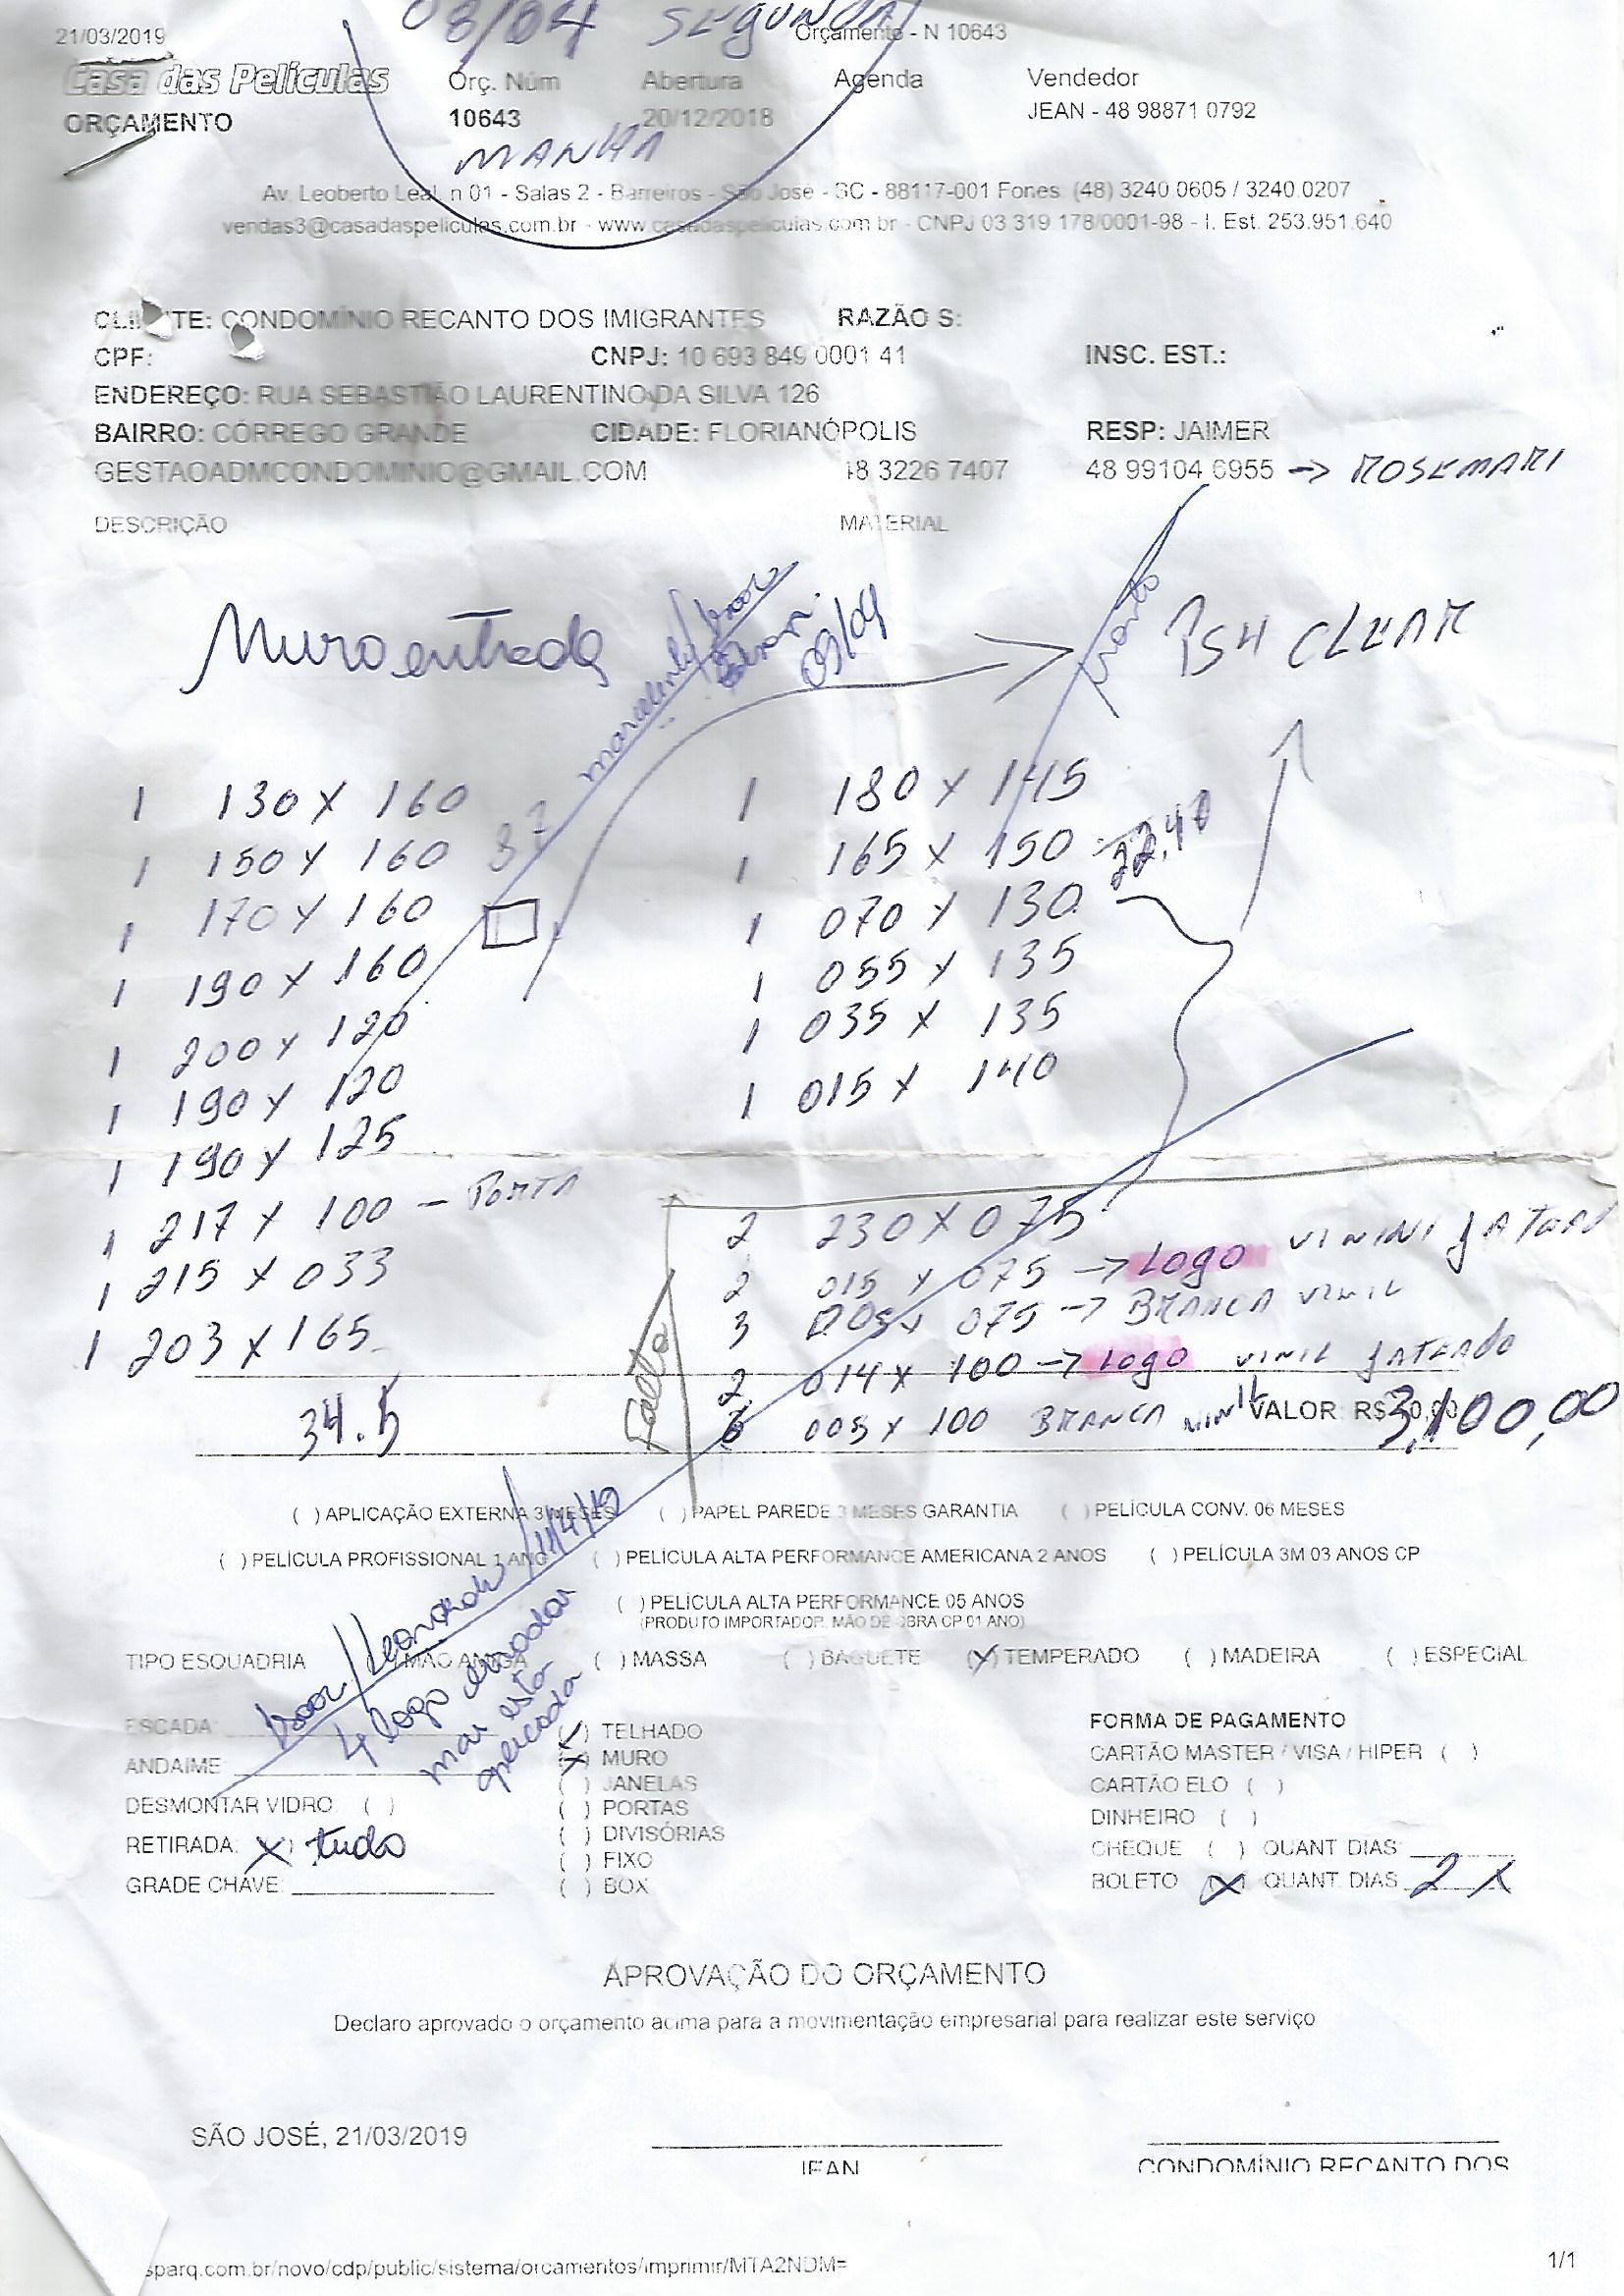 08/04 SEGUNDA
21/03/2019 Orçamento - N 10643
Casa das Películas Orç. Núm Abertura Agenda Vendedor
ORÇAMENTO 10643 20/12/2018 JEAN - 48 98871 0792
MANHA
Av. Leoberto Leal, n 01 - Salas 2 - Barreiros - São Jose - SC - 88117-001 Fones: (48) 3240.0605 / 3240.0207
vendas3@casadaspeliculas.com.br - www.casadaspeliculas.com.br - CNPJ 03.319.178/0001-98 - I. Est. 253.951.640
CLIENTE: CONDOMÍNIO RECANTO DOS IMIGRANTES RAZÃO S:
CPF: CNPJ: 10 693 849 0001 41 INSC. EST.:
ENDEREÇO: RUA SEBASTIÃO LAURENTINO DA SILVA 126
BAIRRO: CÓRREGO GRANDE CIDADE: FLORIANÓPOLIS RESP: JAIMER
GESTAOADMCONDOMINIO@GMAIL.COM 48 3226 7407 48 99104 6955 → ROSEMARI
DESCRIÇÃO MATERIAL
Muro entrada 09/04 pronto PS4 CLEAR
1 130 x 160 1 180 x 145
1 150 x 160 1 165 x 150 22,40
1 170 x 160 1 070 x 130
1 190 x 160 1 055 x 135
1 200 x 120 1 035 x 135
1 190 x 120 1 015 x 140
1 190 x 125
1 217 x 100 - PORTA
2 230 x 075
1 215 x 033 2 015 x 075 → LOGO
3 005 x 075 → BRANCA VINIL
1 203 x 165 2 014 x 100 → LOGO VINIL JATEADO
34.5 Falta 6 005 x 100 BRANCA VINIL VALOR R$ 3,100,00
( ) APLICAÇÃO EXTERNA 3 MESES ( ) PAPEL PAREDE 3 MESES GARANTIA ( ) PELÍCULA CONV. 06 MESES
( ) PELÍCULA PROFISSIONAL 1 ANO ( ) PELÍCULA ALTA PERFORMANCE AMERICANA 2 ANOS ( ) PELÍCULA 3M 03 ANOS CP
( ) PELÍCULA ALTA PERFORMANCE 05 ANOS
(PRODUTO IMPORTADOR. MÃO DE OBRA CP 01 ANO)
Leonardo 11/4/19
4 logo errodor mar esta apricada
TIPO ESQUADRIA ( ) MÃO AMIGA ( ) MASSA ( ) BAGUETE (X) TEMPERADO ( ) MADEIRA ( ) ESPECIAL
ESCADA: (/) TELHADO FORMA DE PAGAMENTO
ANDAIME: (X) MURO CARTÃO MASTER / VISA / HIPER ( )
( ) JANELAS CARTÃO ELO ( )
DESMONTAR VIDRO: ( ) ( ) PORTAS DINHEIRO ( )
RETIRADA: (X) tudo ( ) DIVISÓRIAS CHEQUE ( ) QUANT DIAS:
( ) FIXO
GRADE CHAVE: ( ) BOX BOLETO (X) QUANT. DIAS 2 X
APROVAÇÃO DO ORÇAMENTO
Declaro aprovado o orçamento acima para a movimentação empresarial para realizar este serviço
SÃO JOSÉ, 21/03/2019
JEAN CONDOMÍNIO RECANTO DOS
sparq.com.br/novo/cdp/public/sistema/orcamentos/imprimir/MTA2NDM= 1/1